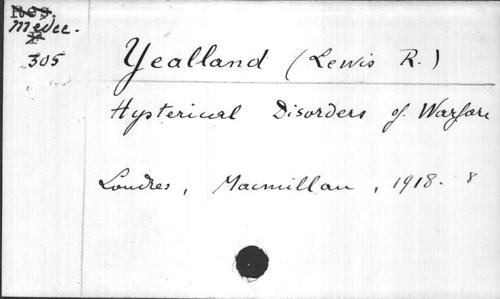 Res.
Medec.
305
Yealland (Lewis R.)
Hysterical Disorders of Warfare
Londres, Macmillan, 1918. 8